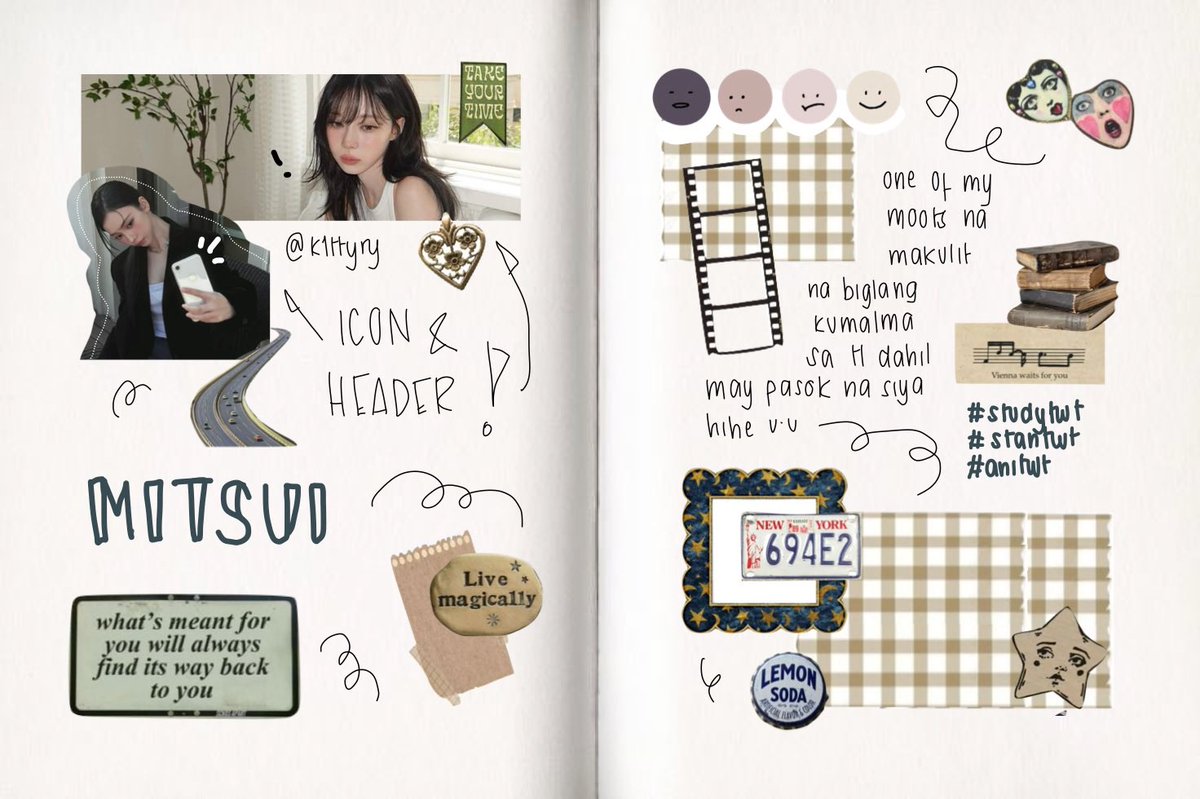 TAKE
YOUR
TIME
@k1ttyry
ICON &
HEADER
MITSUI
what's meant for
you will always
find its way back
to you
Live
magically
one of my
moots na
makulit
na biglang
kumalma
sa tl dahil
may pasok na siya
hihe u.u
Vienna waits for you
#studytwt
#stantwt
#anitwt
NEW YORK
694E2
LEMON
SODA
ARTIFICIAL FLAVOR & COLOR